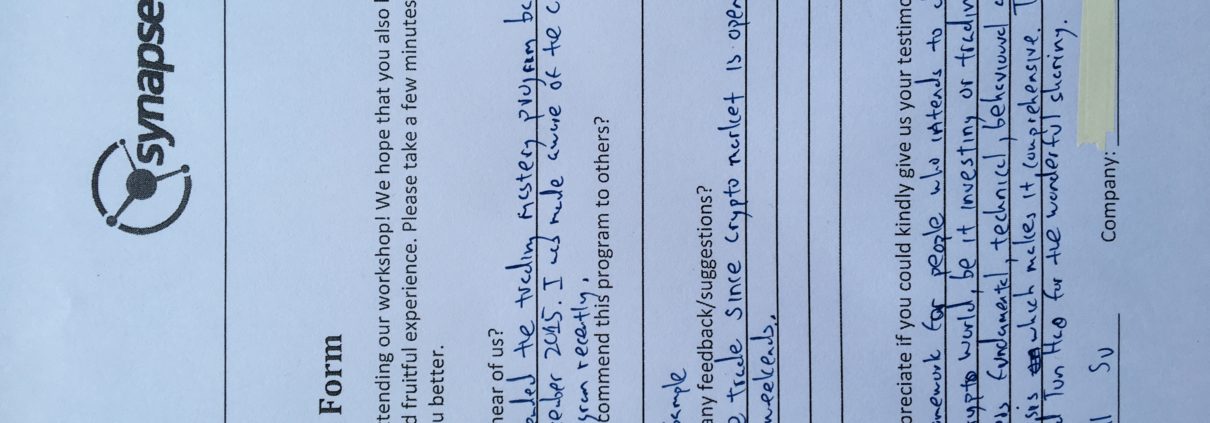 synapse
Form
ttending our workshop! We hope that you also
d fruitful experience. Please take a few minutes
u better.
hear of us?
the trading mastery program
ember 2015. I was made aware of the
gram recently.
commend this program to others?
any feedback/suggestions?
trade since crypto market is open
weekends.
preciate if you could kindly give us your testimo
mework for people who intends to
crypto world, be it investing or tradin
fundamental, technical, behavioural
sis which makes it comprehensive.
Tun Hao for the wonderful sharing.
Su Company: